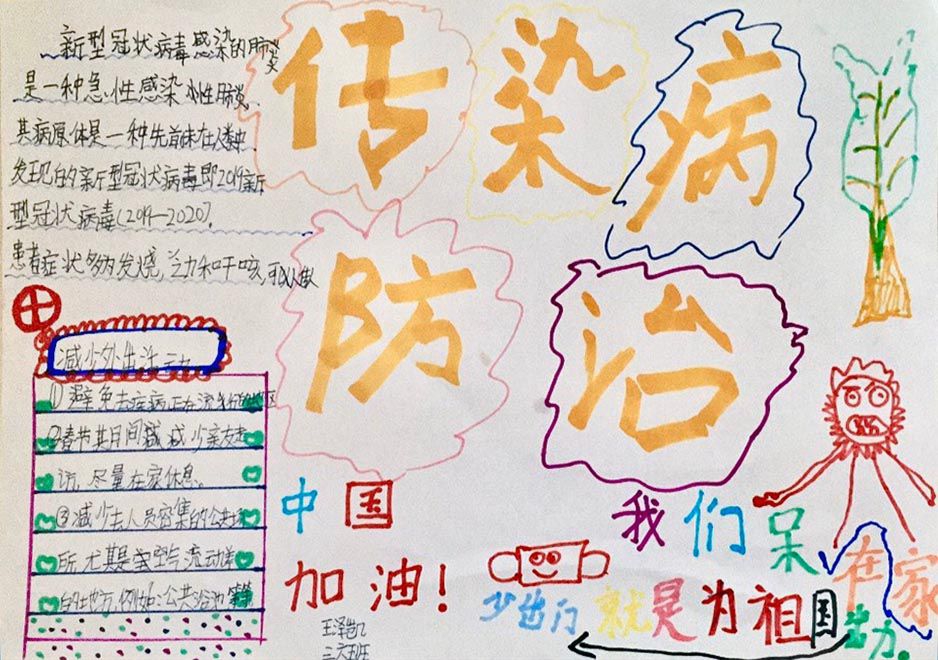 传染病
防治
新型冠状病毒感染的肺炎
是一种急性感染性肺炎,
其病原体是一种先前未在人类中
发现的新型冠状病毒即2019新
型冠状病毒(2019—2020),
患者症状多为发烧,乏力和干咳,
减少外出活动
①避免去疾病正在流行的地区
②春节其日间减减少亲友走
访,尽量在家休息。
③减少去人员密集的公共场
所,尤其是空气流动差
的地方,例如:公共浴池
中国
加油!
我们呆在家
少出门就是为祖国出力。
三六班